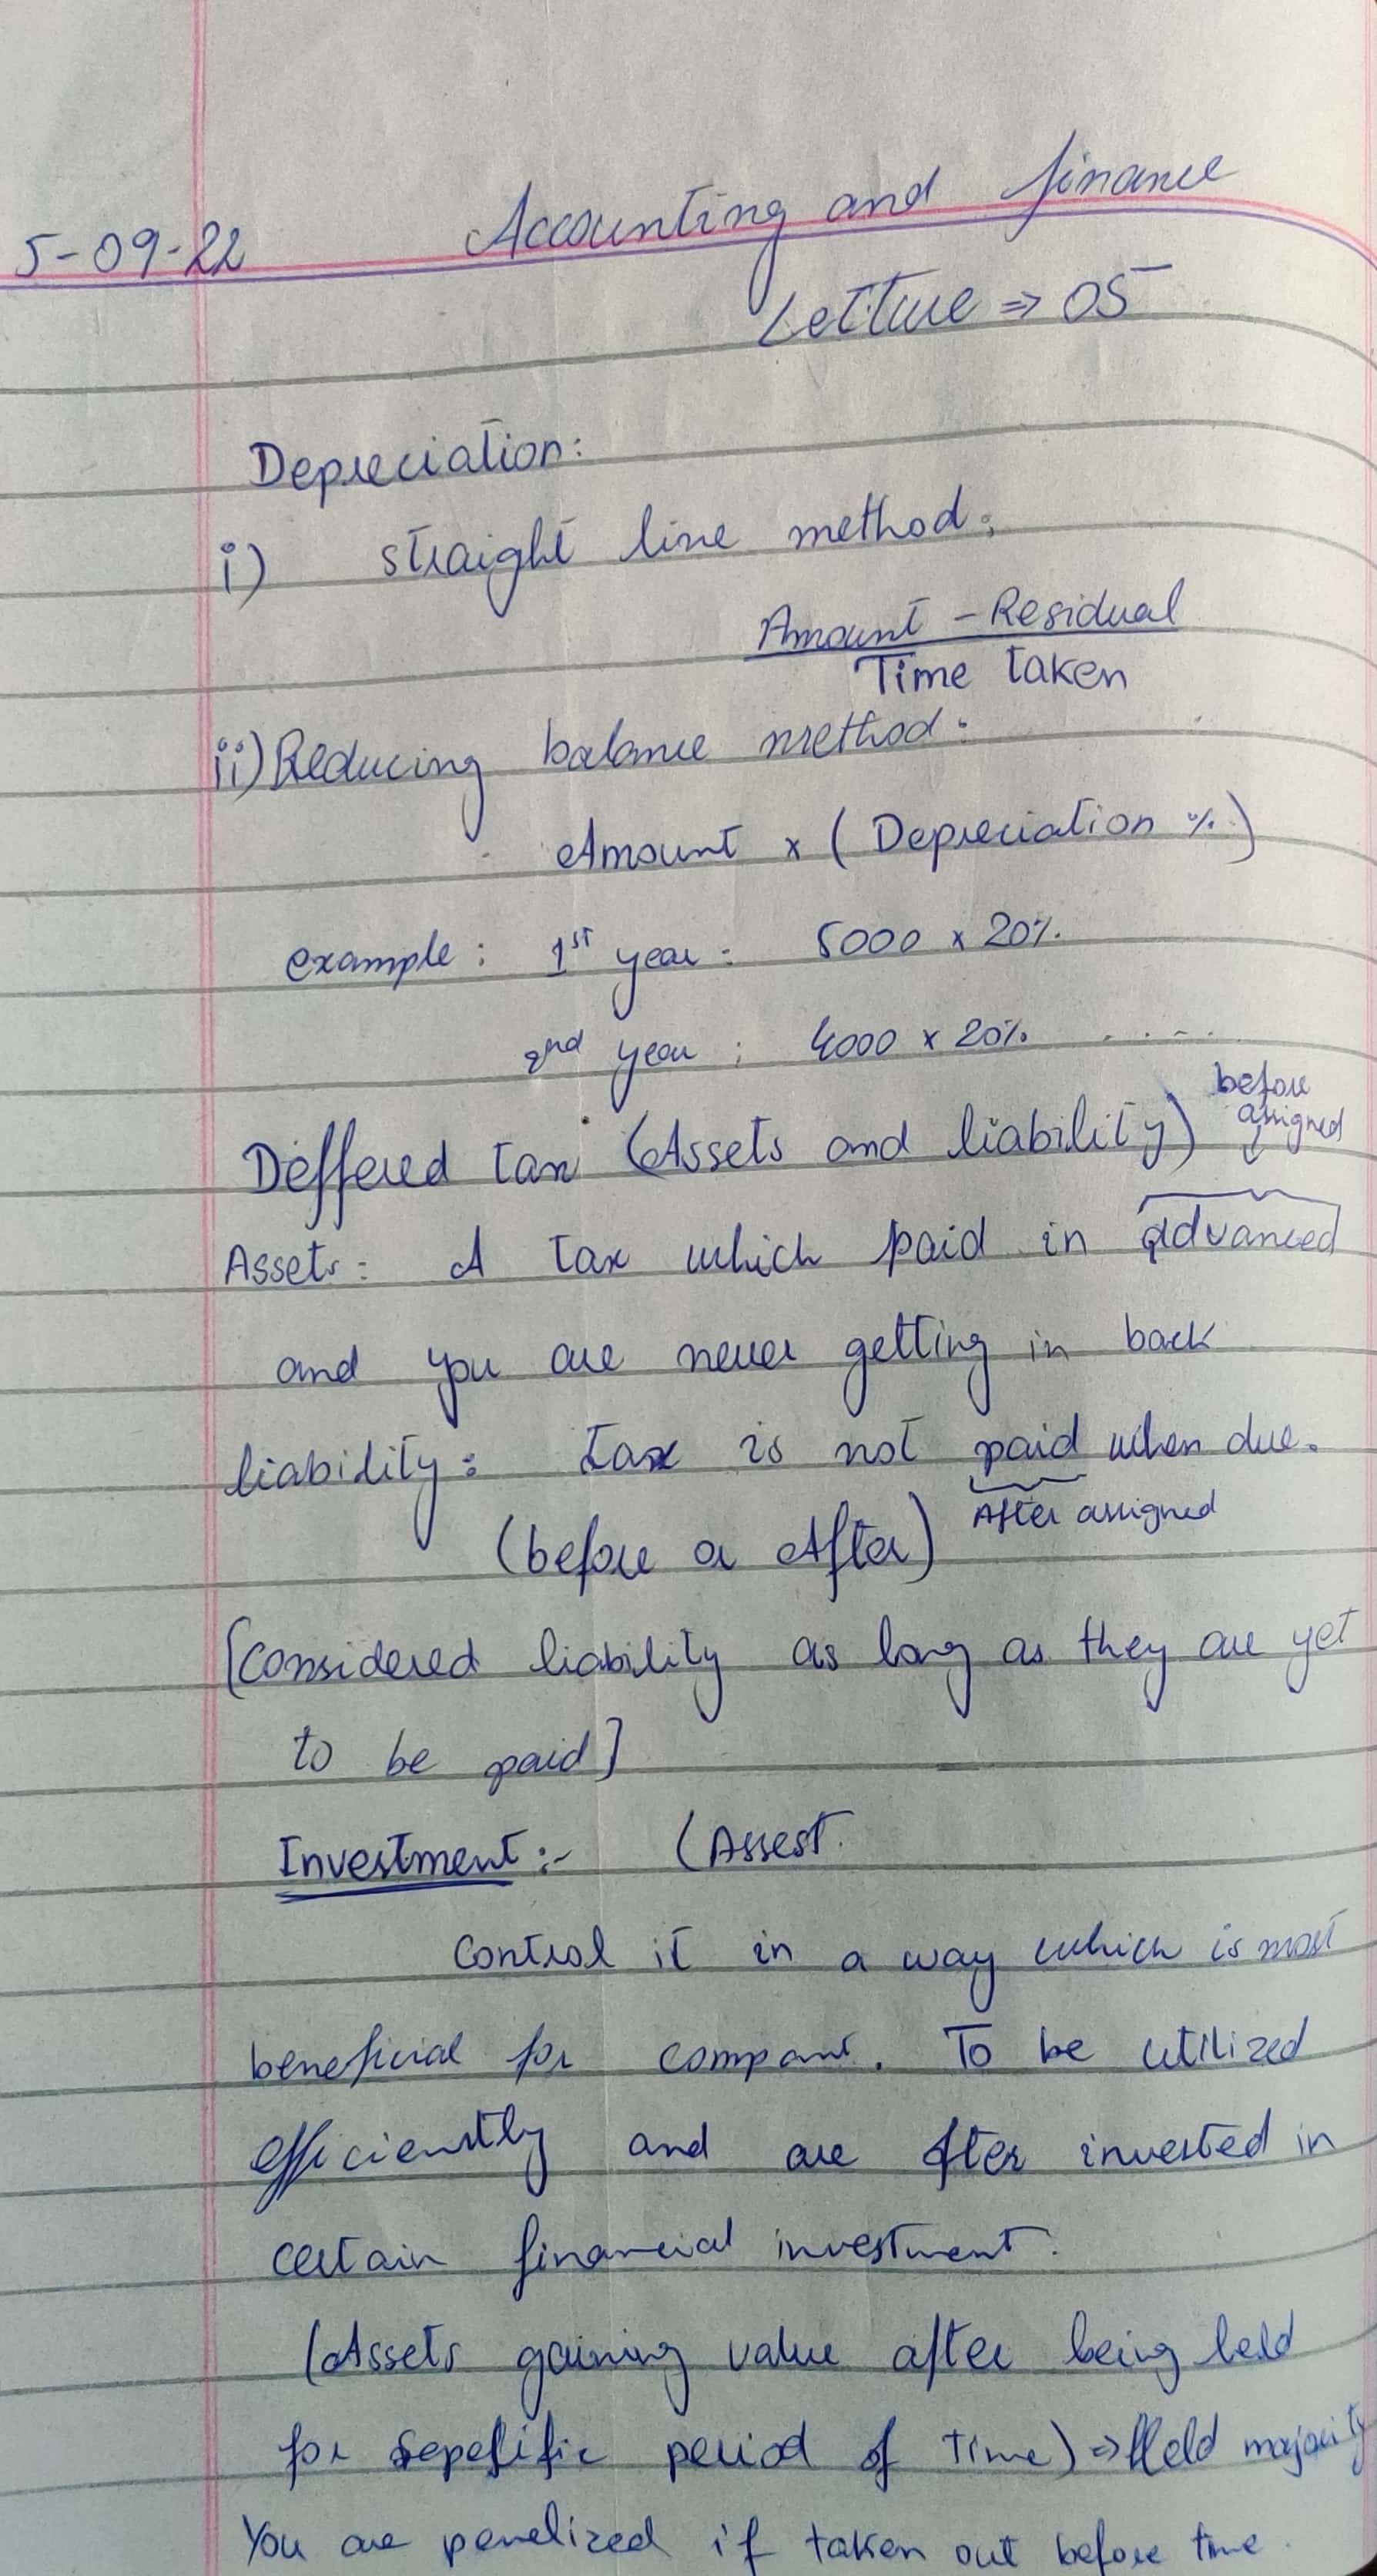 5-09-22 Accounting and finance
Lecture ⇒ 05
Depreciation:
i) straight line method:
Amount - Residual
Time taken
ii) Reducing balance method:
Amount x (Depreciation %)
example: 1st year: 5000 x 20%
2nd year: 4000 x 20% .....
before
assigned
Deffered tax (Assets and liability)
Assets: A tax which paid in advanced
and you are never getting in back
liability: tax is not paid when due.
After assigned
(before or After)
[Considered liability as long as they are yet
to be paid]
Investment:- (Assest.
Control it in a way which is most
beneficial for . To be utilized
efficienttly and are After invested in
certain financial investment.
(Assets gaining value after being held
for sepefific period of Time) ⇒ Held majority
You are penelized if taken out before time.